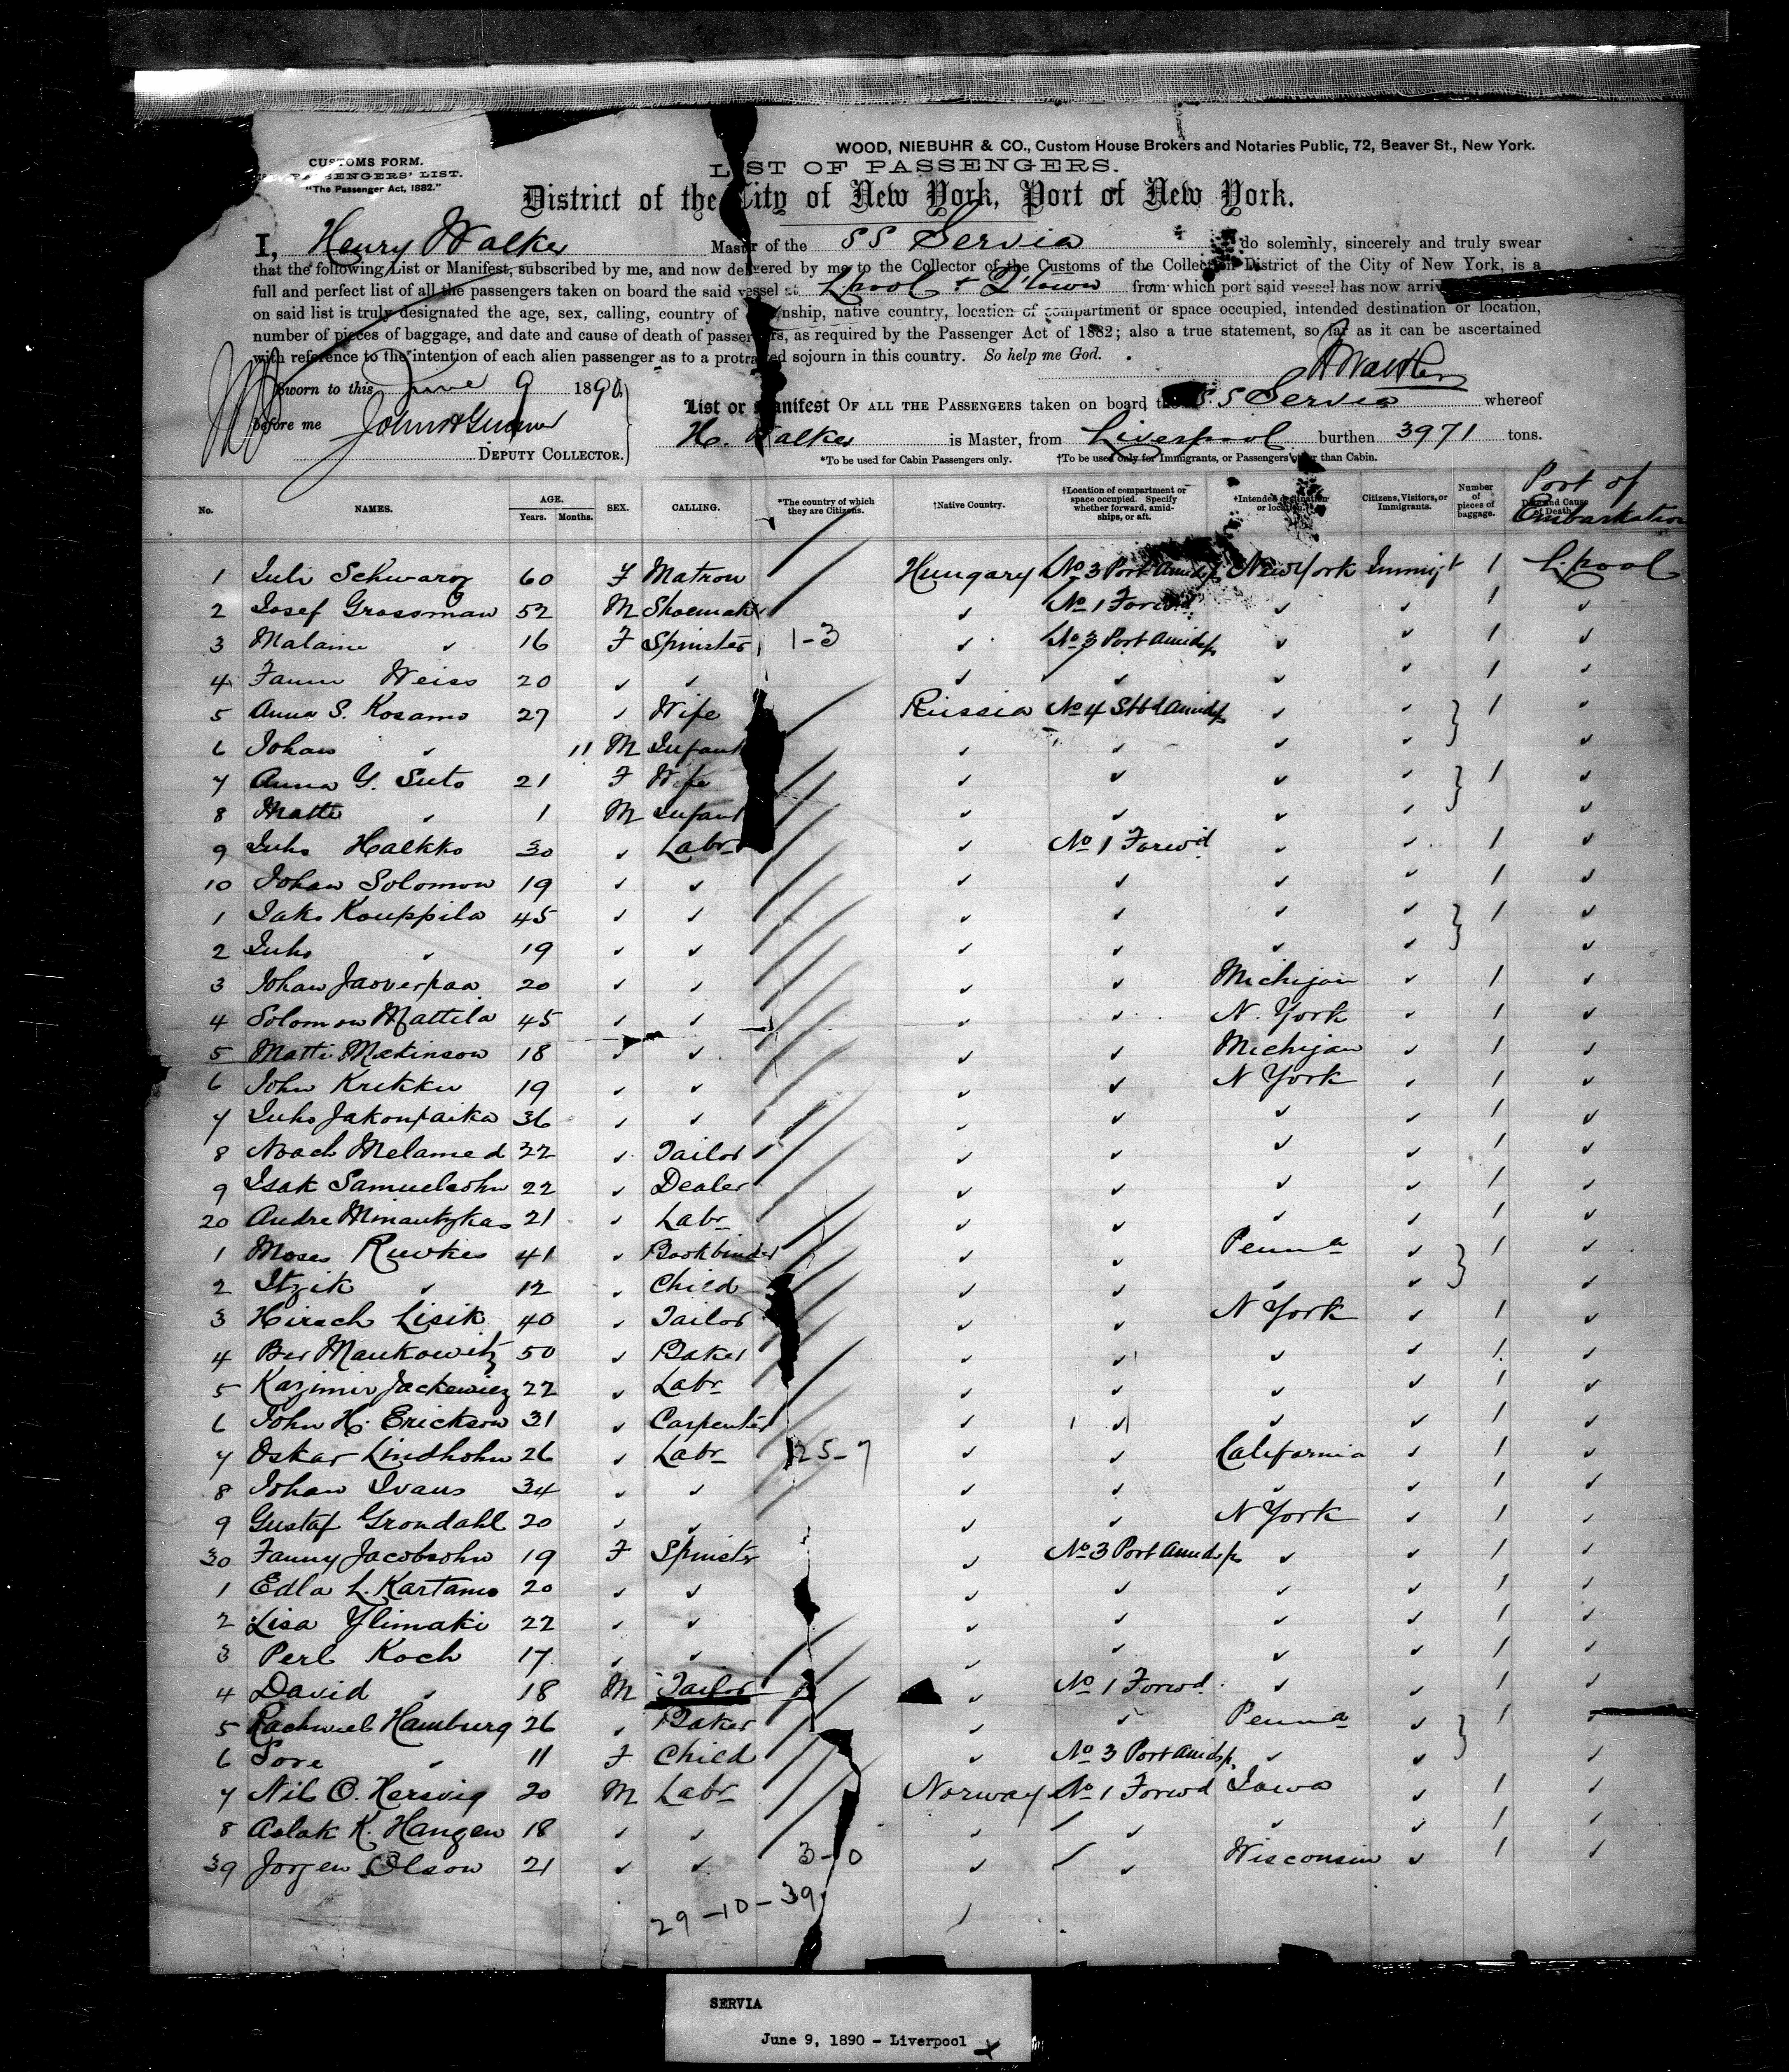 WOOD, NIEBUHR & CO., Custom House Brokers and Notaries Public, 72, Beaver St., New York.
CUSTOMS FORM.
PASSENGERS' LIST.
"The Passenger Act, 1882."
LIST OF PASSENGERS.
District of the City of New York, Port of New York.
I, Henry Walker Master of the SS Servia do solemnly, sincerely and truly swear
that the following List or Manifest, subscribed by me, and now delivered by me to the Collector of the Customs of the Collection District of the City of New York, is a
full and perfect list of all the passengers taken on board the said vessel at L'pool & Q'town from which port said vessel has now
on said list is truly designated the age, sex, calling, country of native country, location of compartment or space occupied, intended destination or location,
number of pieces of baggage, and date and cause of death of passengers, as required by the Passenger Act of 1882; also a true statement, so far as it can be ascertained
with reference to the intention of each alien passenger as to a protracted sojourn in this country. So help me God.
H Walker
Sworn to this June 9 1890
before me
DEPUTY COLLECTOR.
List or Manifest OF ALL THE PASSENGERS taken on board the SS Servia whereof
H. Walker is Master, from Liverpool burthen 3971 tons.
*To be used for Cabin Passengers only. †To be used only for Immigrants, or Passengers other than Cabin.
No. NAMES. AGE. Years. Months. SEX. CALLING. *The country of which they are Citizens. †Native Country. †Location of compartment or space occupied. Specify whether forward, amidships, or aft. †Intended destination or location. Citizens, Visitors, or Immigrants. Number of pieces of baggage. Date and Cause of Death. Port of Embarkation
1 Juli Schwarz 60 F Matron Hungary No 3 Port Amidsp New York Immigt 1 L'pool
2 Josef Grossman 52 M Shoemaker ✓ No 1 Forwd ✓ ✓ 1 ✓
3 Malaine ✓ 16 F Spinster 1-3 ✓ No 3 Port Amidsp ✓ ✓ 1 ✓
4 Weiss 20 ✓ ✓ ✓ ✓ ✓ ✓ 1 ✓
5 Anna S. Kosamo 27 ✓ Wife Russia No 4 Stbd Amidsp ✓ ✓ } 1 ✓
6 Johan ✓ 11 M Infant ✓ ✓ ✓ ✓ ✓
7 Anna Y. Suto 21 F Wife ✓ ✓ ✓ ✓ } 1 ✓
8 Matti ✓ 1 M Infant ✓ ✓ ✓ ✓ ✓
9 Juho Halkko 30 ✓ Labr ✓ No 1 Forw'd ✓ ✓ 1 ✓
10 Johan Solomon 19 ✓ ✓ ✓ ✓ ✓ ✓ 1 ✓
1 Jako Kouppila 45 ✓ ✓ ✓ ✓ ✓ ✓ } 1 ✓
2 Juho ✓ 19 ✓ ✓ ✓ ✓ ✓ ✓ ✓
3 Johan Jaoverpaa 20 ✓ ✓ ✓ ✓ Michigan ✓ 1 ✓
4 Solomon Mattila 45 ✓ ✓ ✓ ✓ N. York ✓ 1 ✓
5 Matti Mckinson 18 ✓ ✓ ✓ ✓ Michigan ✓ 1 ✓
6 John Krekku 19 ✓ ✓ ✓ ✓ N York ✓ 1 ✓
7 Juho Jakonpaika 36 ✓ ✓ ✓ ✓ ✓ ✓ 1 ✓
8 Noach Melamed 22 ✓ Tailor ✓ ✓ ✓ ✓ 1 ✓
9 Isak Samuelsohn 22 ✓ Dealer ✓ ✓ ✓ ✓ 1 ✓
20 Andre Minautzkas 21 ✓ Labr ✓ ✓ ✓ ✓ 1 ✓
1 Moses Ruwkes 41 ✓ Bookbinder ✓ ✓ Penna ✓ } 1 ✓
2 Itzik ✓ 12 ✓ Child ✓ ✓ ✓ ✓ ✓
3 Hirsch Lisik 40 ✓ Tailor ✓ ✓ N York ✓ 1 ✓
4 Ber Mankowitz 50 ✓ Baker ✓ ✓ ✓ ✓ 1 ✓
5 Kazimir Jackewiez 22 ✓ Labr ✓ ✓ ✓ ✓ 1 ✓
6 John H. Erickson 31 ✓ Carpenter ✓ ✓ ✓ ✓ 1 ✓
7 Oskar Lindholm 26 ✓ Labr 25-7 ✓ ✓ California ✓ 1 ✓
8 Johan Ivans 34 ✓ ✓ ✓ ✓ ✓ ✓ 1 ✓
9 Gustaf Grondahl 20 ✓ ✓ ✓ ✓ N York ✓ 1 ✓
30 Fanny Jacobsohn 19 F Spinster ✓ No 3 Port Amidsp ✓ ✓ 1 ✓
1 Edla L. Kartamo 20 ✓ ✓ ✓ ✓ ✓ 1 ✓
2 Lisa Ylimaki 22 ✓ ✓ ✓ ✓ ✓ ✓ 1 ✓
3 Perl Koch 17 ✓ ✓ ✓ ✓ ✓ ✓ 1 ✓
4 David ✓ 18 M Tailor ✓ No 1 Forwd ✓ ✓ 1 ✓
5 Hamburg 26 ✓ Baker ✓ ✓ Penna ✓ } 1 ✓
6 Sore ✓ 11 F Child ✓ No 3 Port Amidsp ✓ ✓ ✓
7 Nils O. Hersvig 20 M Labr Norway No 1 Forwd Iowa ✓ 1 ✓
8 Aslak K. Haugen 18 ✓ ✓ ✓ ✓ ✓ ✓ 1 ✓
39 Jorgen Olson 21 ✓ ✓ 3-0 ✓ ✓ Wisconsin ✓ 1 ✓
29-10-39
SERVIA
June 9, 1890 - Liverpool